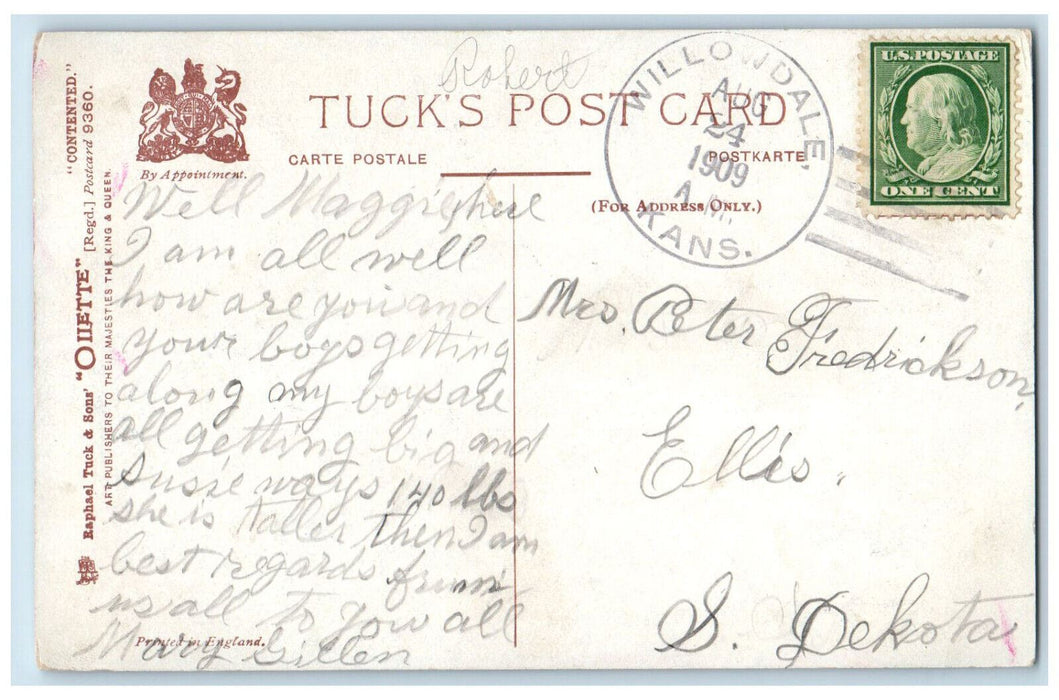 Robert
TUCK'S POST CARD
CARTE POSTALE
POSTKARTE
(FOR ADDRESS ONLY.)
By Appointment.
"CONTENTED."
[Regd.] Postcard 9360.
Raphael Tuck & Sons' "OILETTE"
ART PUBLISHERS TO THEIR MAJESTIES THE KING & QUEEN.
Printed in England.
WILLOWDALE,
AUG
24
1909
A.M.
KANS.
U.S. POSTAGE
ONE CENT
Well Maggie here
I am all well
how are you and
your boys getting
along my boys are
all getting big and
Susie ways 140 lbs
she is taller then I am
best regards frum
us all to you all
Mary Gillen
Mrs. Peter Fredrickson,
Ellis.
S. Dekota